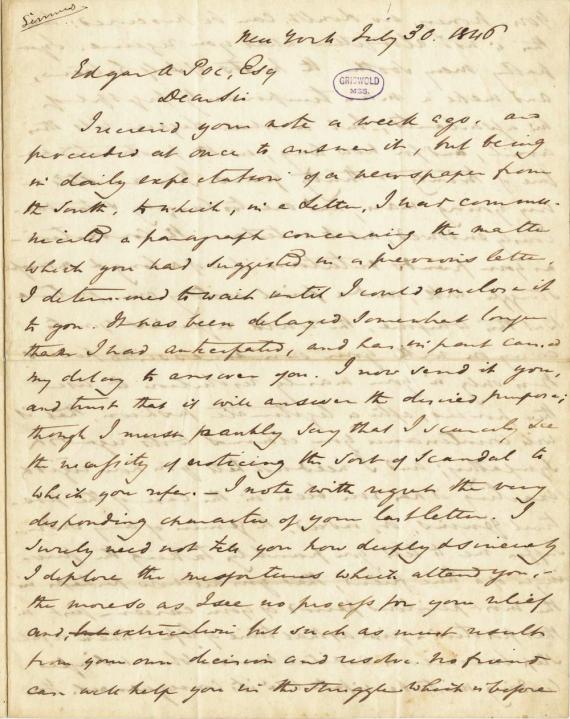 Simms
New York July 30. 1846
Edgar A Poe, Esq
GRISWOLD
MSS.
Dear Sir
I received your note a week ago, and
proceeded at once to answer it, but being
in daily expectation of a newspaper from
the South, to which, in a Letter, I had commu-
nicated a paragraph concerning the matter
which you had suggested in a previous letter,
I determined to wait until I could enclose it
to you. It has been delayed somewhat longer
than I had anticipated, and has in part caused
my delay to answer you. I now send it you,
and trust that it will answer the desired purpose;
though I must frankly say that I scarcely see
the necessity of noticing the sort of scandal to
which you refer. — I note with regret the very
desponding character of your last letter. I
surely need not tell you how deeply & sincerely
I deplore the misfortunes which attend you, —
the more so as I see no process for your relief
and, but extrication, but such as must result
from your own decision and resolve. No friend
can well help you in the struggle which is before